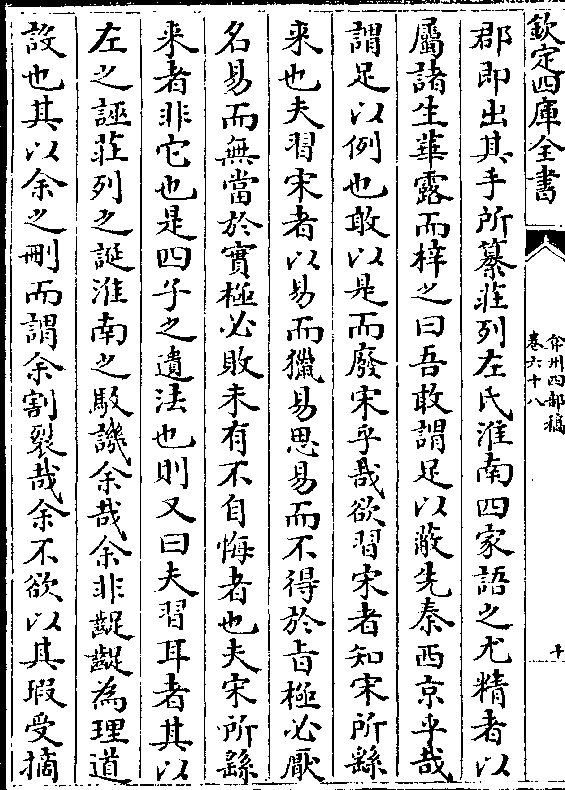 欽定四庫全書
弇州四部稿
卷六十八
十
郡即出其手所纂莊列左氏淮南四家語之尤精者以
屬諸生華露而梓之曰吾敢謂足以蔽先秦西京乎哉
謂足以例也敢以是而廢宋乎哉欲習宋者知宋所繇
来也夫習宋者以易而獵易思易而不得於㫖極必厭
名易而無當於實極必敗未有不自悔者也夫宋所繇
来者非它也是四子之遺法也則又曰夫習耳者其以
左之誣莊列之誕淮南之駁譏余哉余非齪齪為理道
設也其以余之刪而謂余割裂哉余不欲以其瑕受摘